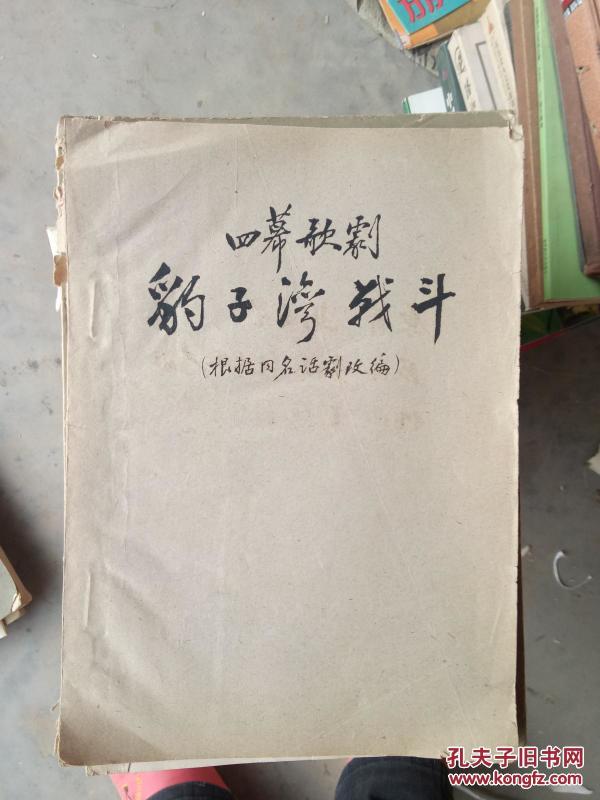 四幕歌劇
豹子湾战斗
(根据同名话劇改编)
孔夫子旧书网
www.kongfz.com